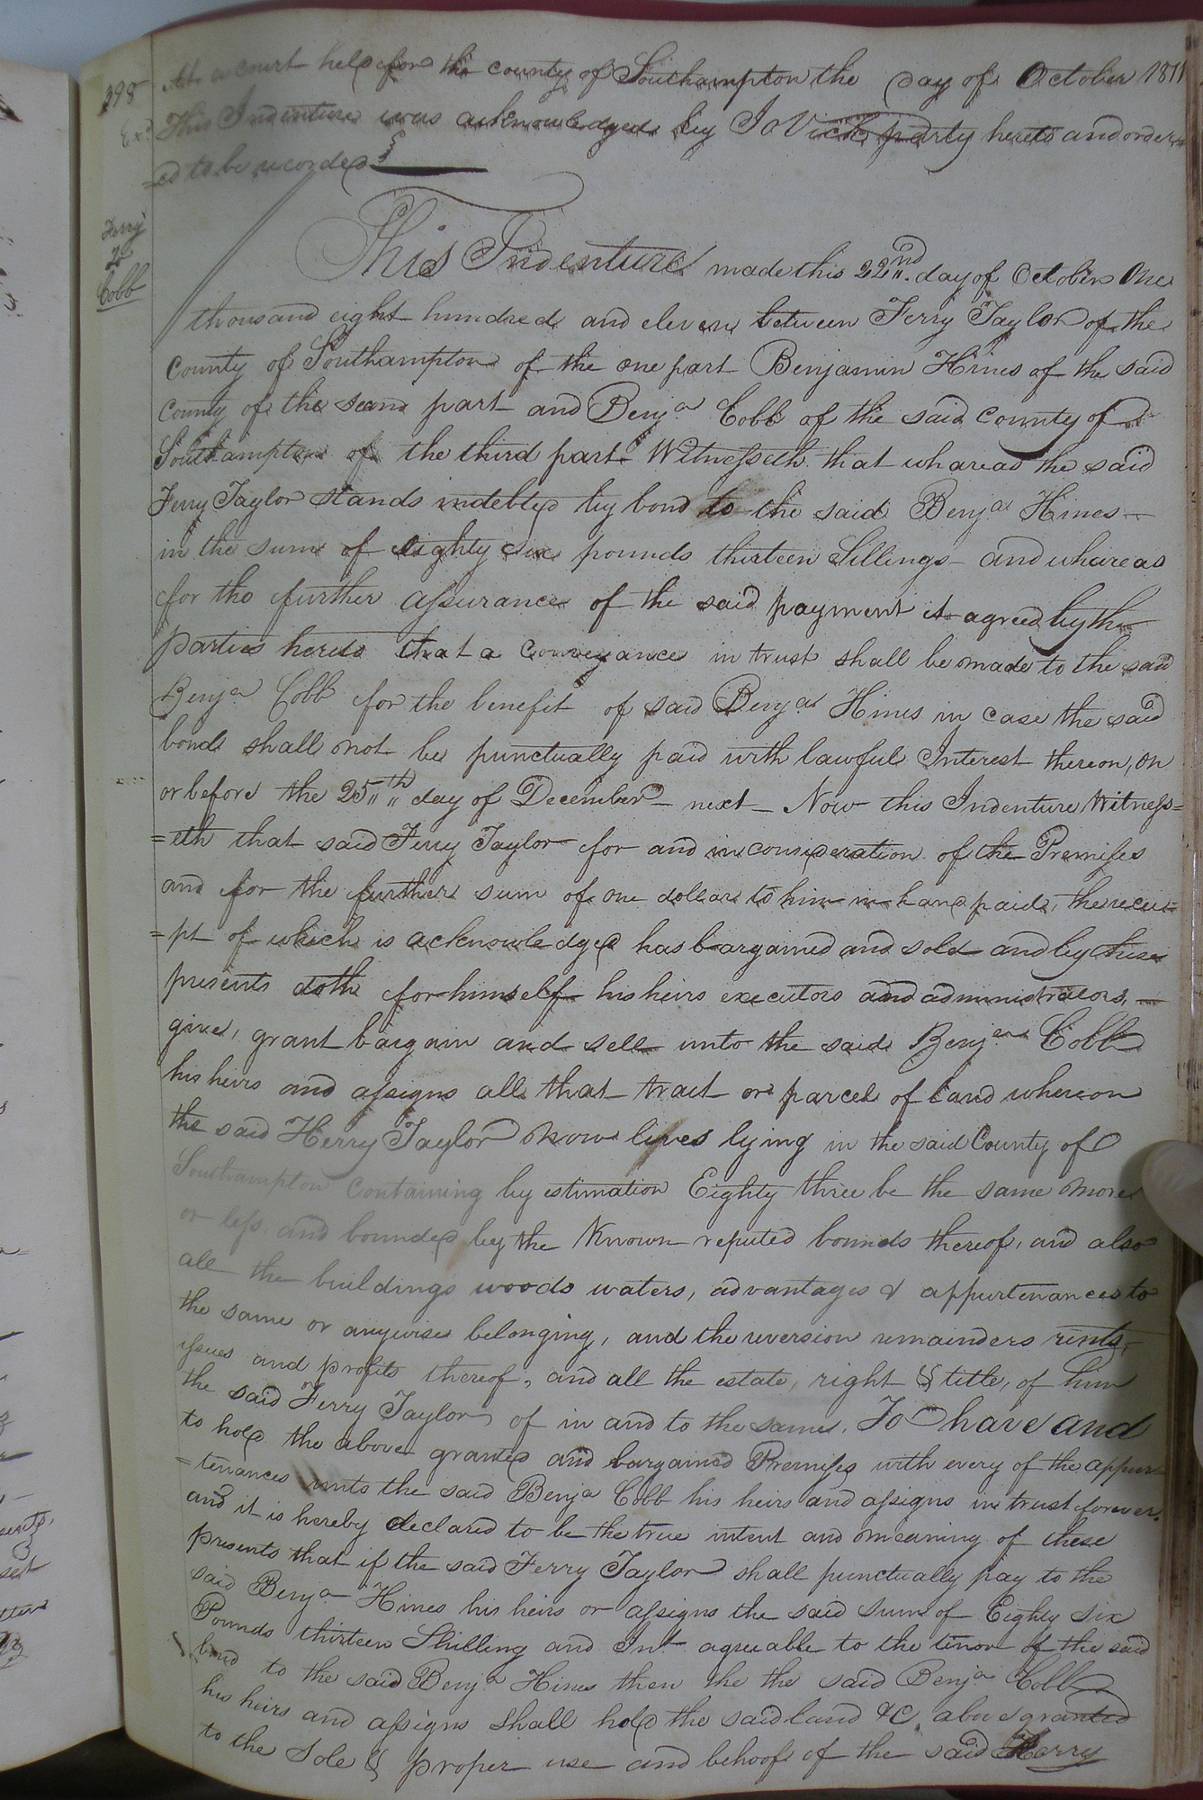 398
At a court held for the county of Southampton the day of October 1811
This Indenture was acknowledged by Jo Vick party hereto and order
=ed to be recorded
Ferry
to
Cobb
This Indenture made this 22nd. day of October One
thousand eight hundred and eleven between Ferry Taylor of the
County of Southampton of the one part Benjamin Hines of the said
County of the secnd part and Benja Cobb of the said County of
Southampton of the third part Witnesseth that whareas the said
Ferry Taylor stands indebted by bond to the said Benja Hines —
in the sum of Eighty six pounds thirteen Sillings — and whareas
for the further assurance of the said payment it agreed by the
parties hereto that a Conveyance in trust shall be made to the said
Benja Cobb for the benefit of said Benja Hines in case the said
bonds shall not be punctually paid with lawful Interest thereon, on
or before the 25th day of December — next — Now this Indenture Witness=
=eth that said Ferry Taylor for and in consideration of the Premises
and for the further sum of one dollar to him in hand paid, the recei=
=pt of which is acknowledged has bargained and sold and by these
presents doth for himself his heirs executors and administrators, —
give, grant bargain and sell unto the said Benja Cobb
his heirs and assigns all that tract or parcel of land whereon
the said Herry Taylor now lives lying in the said County of
Southampton Containing by estimation Eighty three be the same more
or less and bounded by the Known reputed bounds thereof, and also
all the buildings woods waters, advantages & appurtenances to
the same or anywise belonging, and the reversion remainders rents,
issues and profits thereof, and all the estate, right & title, of him
the said Ferry Taylor of in and to the same. To have and
to hold the above granted and bargained Premises with every of the appur
=tenances unto the said Benja Cobb his heirs and assigns in trust forever.
and it is hereby declared to be the true intent and meaning of these
presents that if the said Ferry Taylor shall punctually pay to the
said Benja Hines his heirs or assigns the said sum of Eighty six
Pounds thirteen Shilling and Int agreeable to the tenor of the said
bond to the said Benja Hines then the the said Benja Cobb
his heirs and assigns shall hold the said land &C. above granted
to the Sole & proper use and behoof of the said Herry